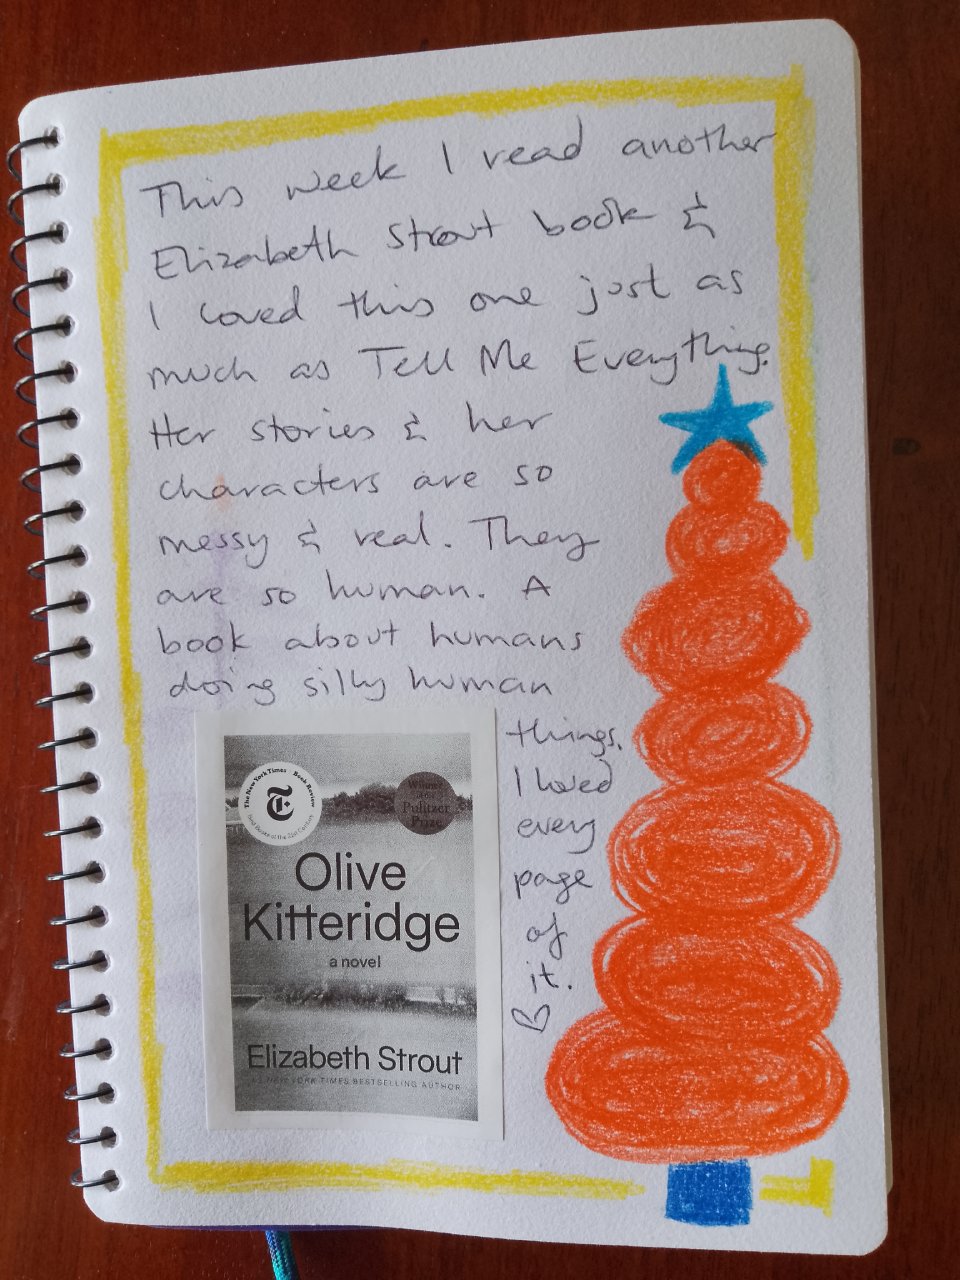 This week I read another
Elizabeth Strout book &
I loved this one just as
much as Tell Me Everything.
Her stories & her
characters are so
messy & real. They
are so human. A
book about humans
doing silly human
things.
I loved
every
page
of
it.
The New York Times Book Review
Best Books of the 21st Century
Winner
Pulitzer
Prize
Olive
Kitteridge
a novel
Elizabeth Strout
#1 NEW YORK TIMES BESTSELLING AUTHOR